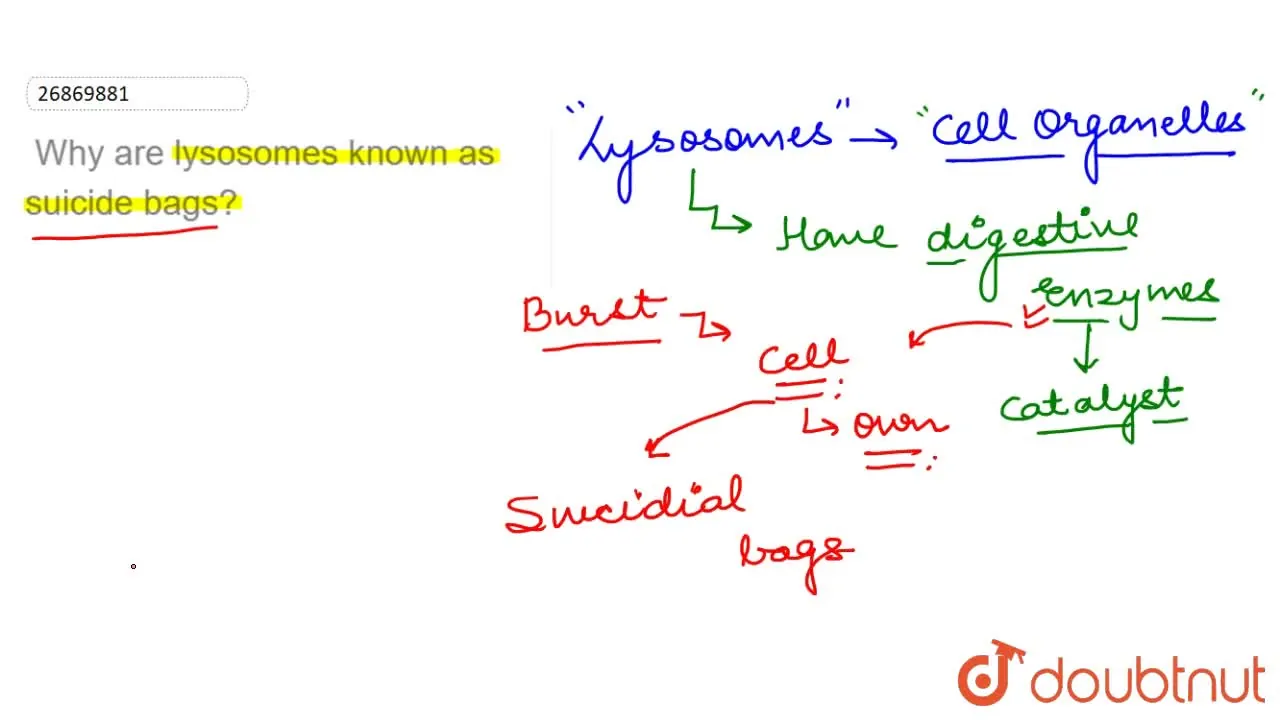 26869881
Why are lysosomes known as
suicide bags?
"Lysosomes" → "Cell Organelles"
Have digestive
enzymes
Catalyst
Burst
Cell
own
Suicidial
bags
doubtnut